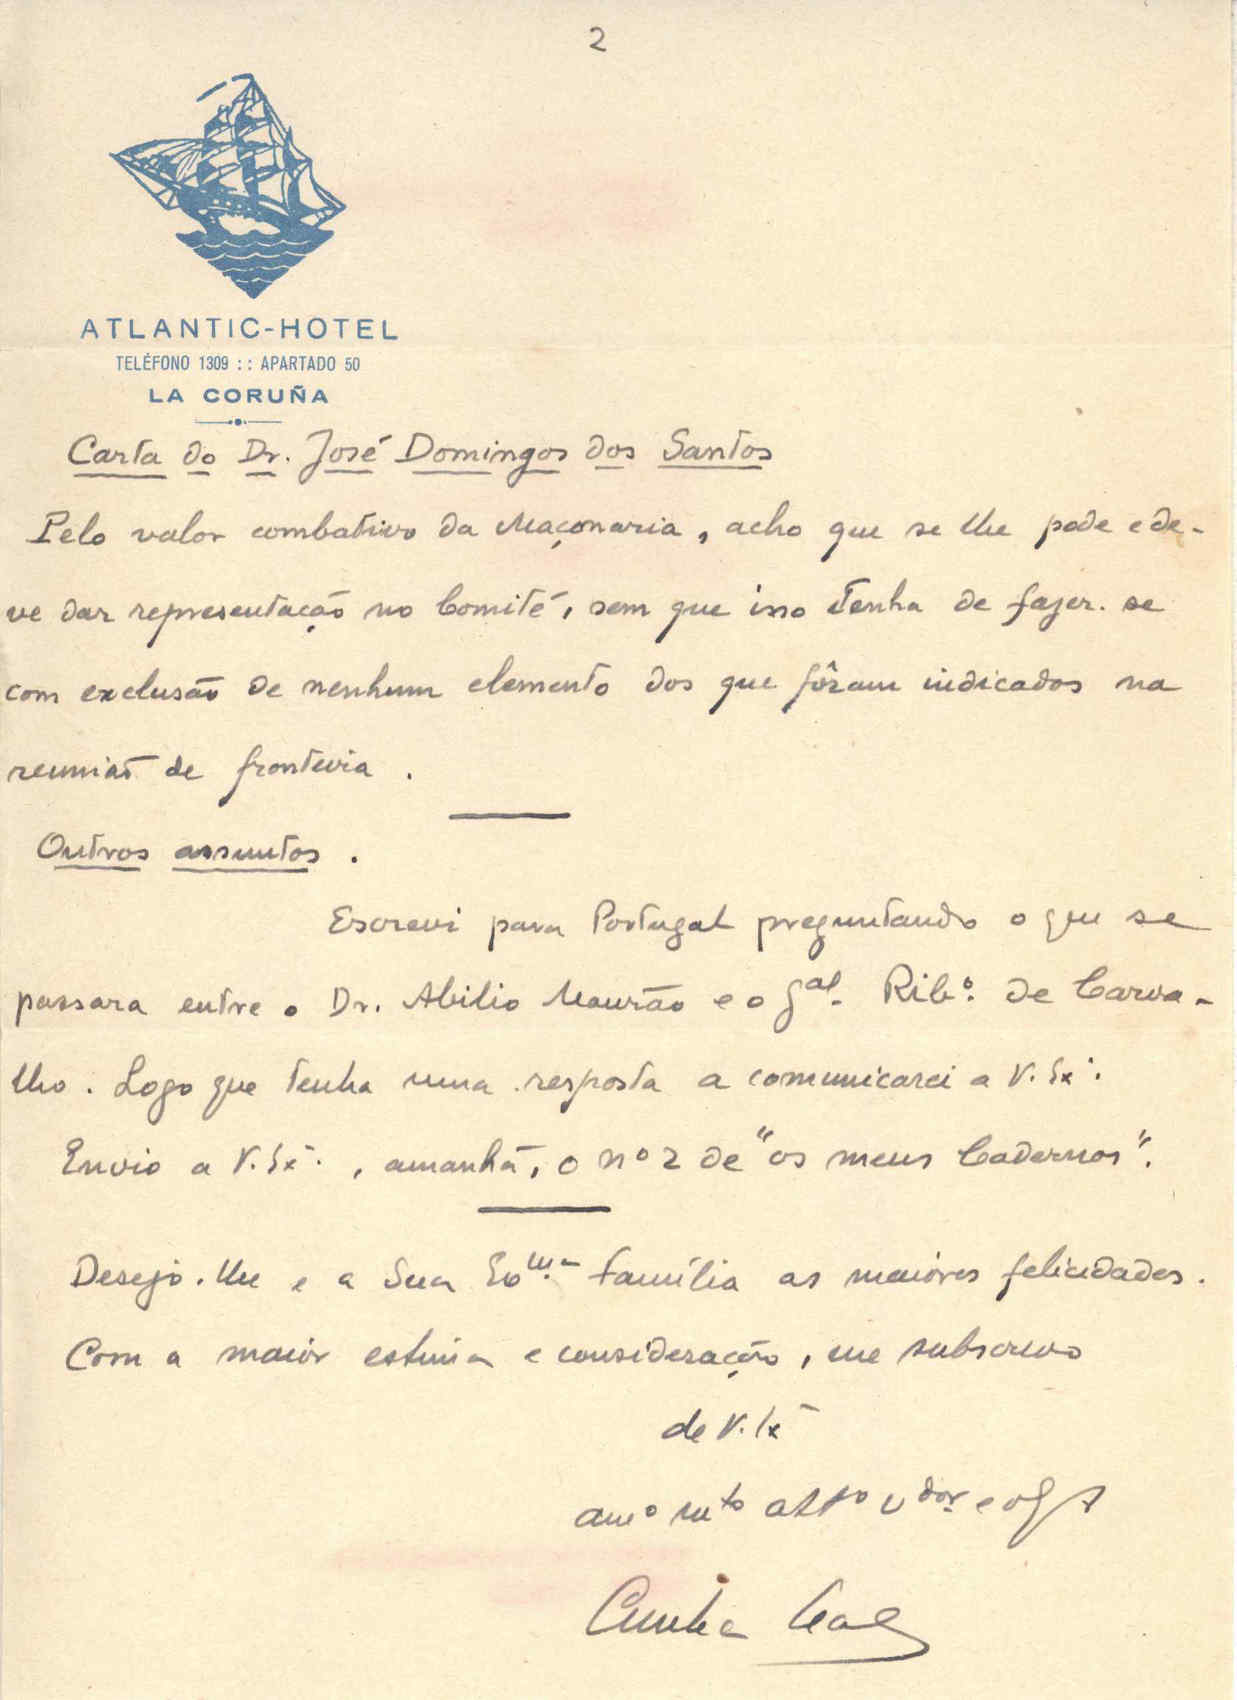 2
ATLANTIC-HOTEL
TELÉFONO 1309 :: APARTADO 50
LA CORUÑA
Carta do Dr. José Domingos dos Santos
Pelo valor combativo da Maçonaria, acho que se lhe pode e de-
ve dar representação no Comité, sem que isso tenha de fazer-se
com exclusão de nenhum elemento dos que fôram indicados na
reunião de fronteria.
Outros assuntos.
Escrevi para Portugal preguntando o que se
passara entre o Dr. Abilio Mourão e o Gal. Ribº. de Carva-
lho. Logo que tenha uma resposta a comunicarei a V. Exª.
Envio a V. Exª., amanhã, o nº 2 de "os meus Cadernos".
Desejo-lhe e a Sua Exma família as maiores felicidades.
Com a maior estima e consideração, me subscrevo
de V. Exª
amº mto attº vdor e
Cunha Leal